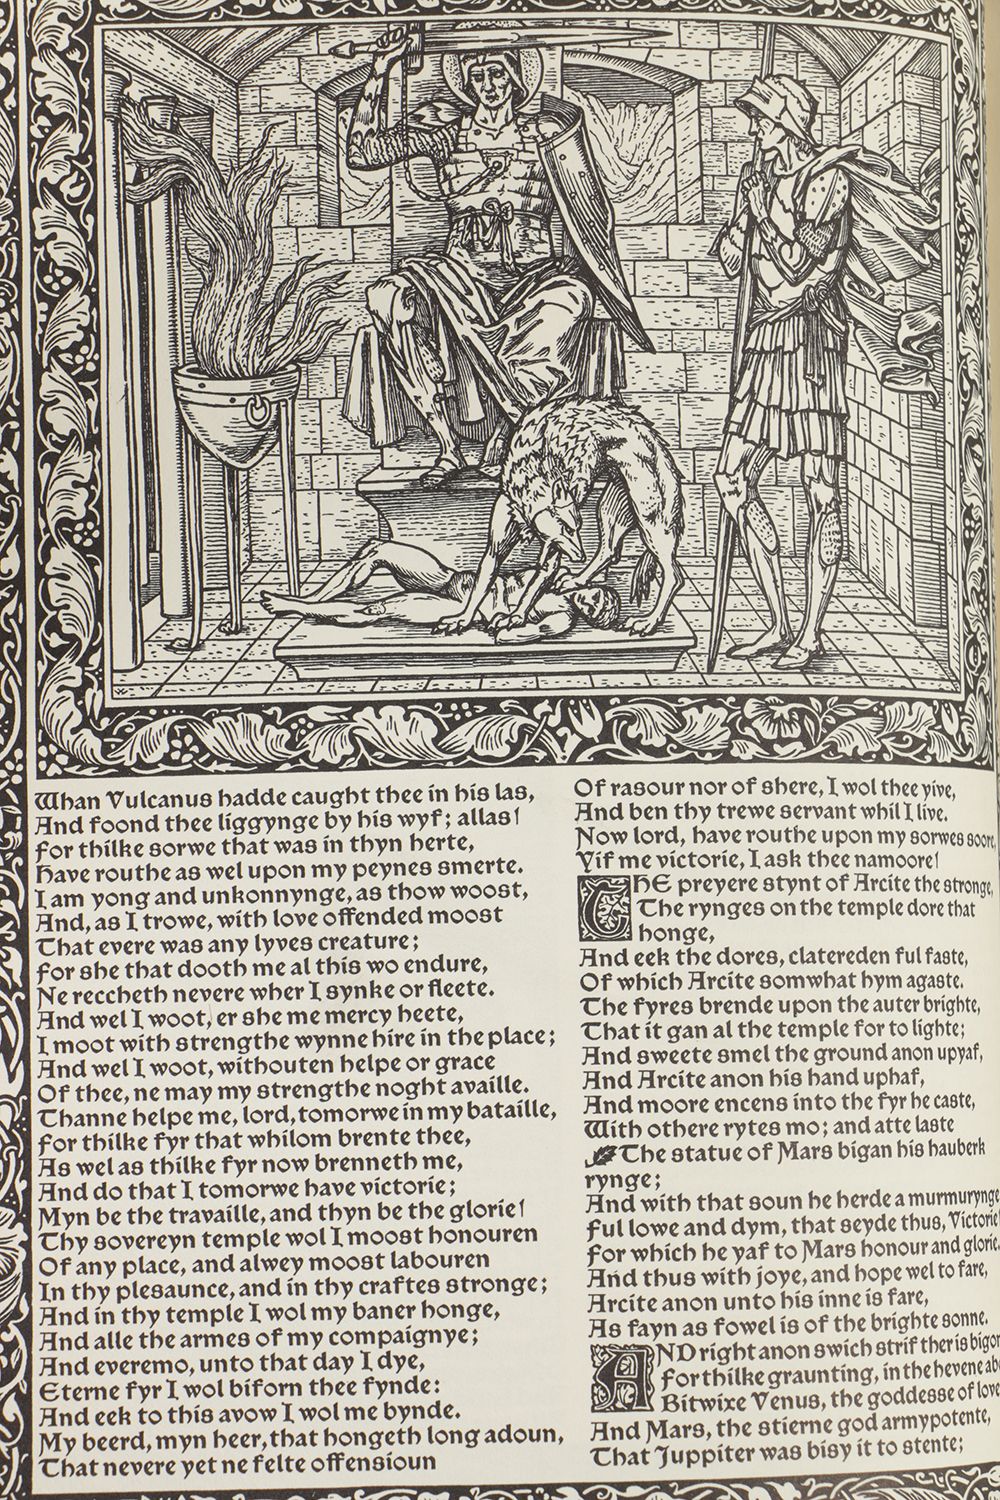 Whan Vulcanus hadde caught thee in his las,
And foond thee liggynge by his wyf; allas!
For thilke sorwe that was in thyn herte,
Have routhe as wel upon my peynes smerte.
I am yong and unkonnynge, as thow woost,
And, as I trowe, with love offended moost
That evere was any lyves creature;
For she that dooth me al this wo endure,
Ne reccheth nevere wher I synke or fleete.
And wel I woot, er she me mercy heete,
I moot with strengthe wynne hire in the place;
And wel I woot, withouten helpe or grace
Of thee, ne may my strengthe noght availle.
Thanne helpe me, lord, tomorwe in my bataille,
For thilke fyr that whilom brente thee,
As wel as thilke fyr now brenneth me,
And do that I tomorwe have victorie;
Myn be the travaille, and thyn be the glorie!
Thy sovereyn temple wol I moost honouren
Of any place, and alwey moost labouren
In thy plesaunce, and in thy craftes stronge;
And in thy temple I wol my baner honge,
And alle the armes of my compaignye;
And everemo, unto that day I dye,
Eterne fyr I wol biforn thee fynde:
And eek to this avow I wol me bynde.
My beerd, myn heer, that hongeth long adoun,
That nevere yet ne felte offensioun
Of rasour nor of shere, I wol thee yive,
And ben thy trewe servant whil I live.
Now lord, have routhe upon my sorwes soore,
Yif me victorie, I ask thee namoore!
THE preyere stynt of Arcite the stronge,
The rynges on the temple dore that
honge,
And eek the dores, clatereden ful faste,
Of which Arcite somwhat hym agaste.
The fyres brende upon the auter brighte,
That it gan al the temple for to lighte;
And sweete smel the ground anon upyaf,
And Arcite anon his hand uphaf,
And moore encens into the fyr he caste,
With othere rytes mo; and atte laste
The statue of Mars bigan his hauberk
rynge;
And with that soun he herde a murmurynge
Ful lowe and dym, that seyde thus, Victorie!
For which he yaf to Mars honour and glorie.
And thus with joye, and hope wel to fare,
Arcite anon unto his inne is fare,
As fayn as fowel is of the brighte sonne.
AND right anon swich strif ther is bigon
For thilke graunting, in the hevene
Bitwixe Venus, the goddesse of love
And Mars, the stierne god armypotente,
That Juppiter was bisy it to stente;